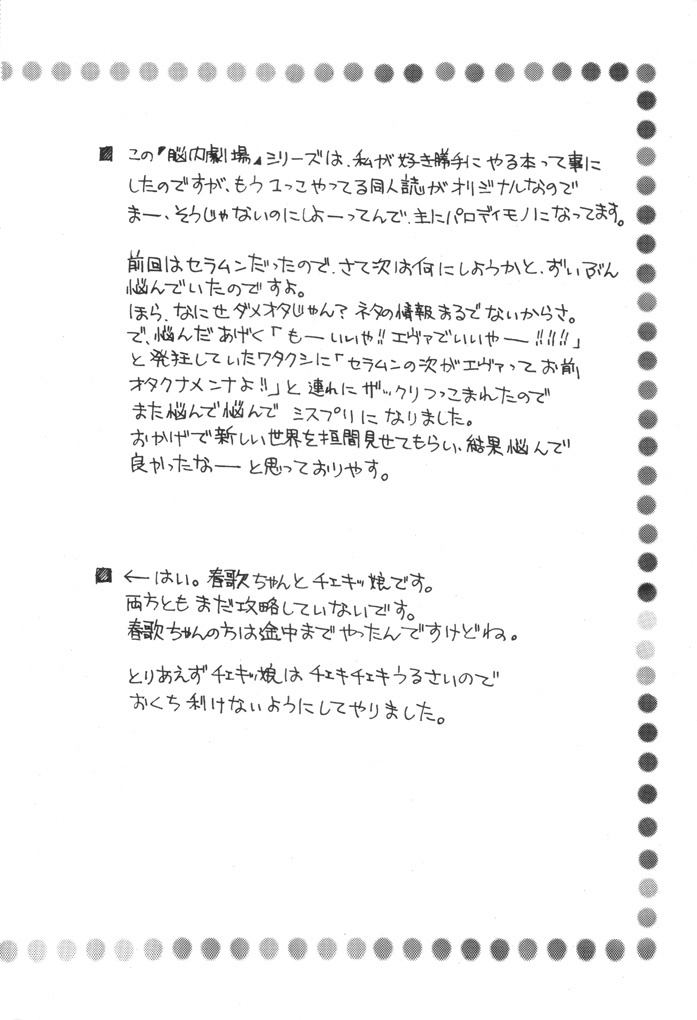 ■ この『脳内劇場』シリーズは、私が好き勝手にやる本って事に
したのですが、もう1つやってる同人誌がオリジナルなので
まー、そうじゃないのにしよーってんで、主にパロディモノになってます。
前回はセラムンだったので、さて次は何にしようかと、ずいぶん
悩んでいたのですよ。
ほら、なにせダメオタじゃん?ネタの情報まるでないからさ。
で、悩んだあげく「もーいいや!!エヴァでいいやー!!!!」
と発狂していたワタクシに「セラムンの次がエヴァってお前
オタクナメンナよ!!」と連れにザックリつっこまれたので
また悩んで悩んで シスプリになりました。
おかげで新しい世界を垣間見せてもらい、結果悩んで
良かったなーと思っておりやす。
■ ←はい。春歌ちゃんとチェキッ娘です。
両方ともまだ攻略していないです。
春歌ちゃんの方は途中までやったんですけどね。
とりあえずチェキッ娘はチェキチェキうるさいので
おくち利けないようにしてやりました。